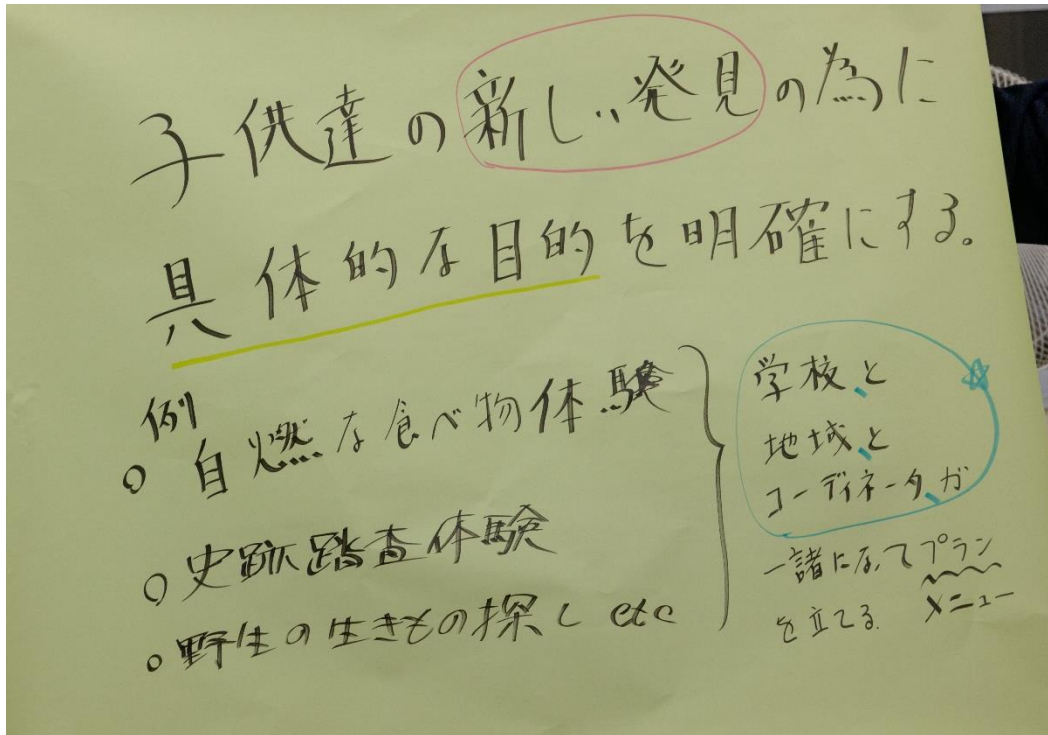 子供達の新しい発見の為に
具体的な目的を明確にする。
例
○ 自燃な食べ物体験
○ 史跡踏査体験
○ 野生の生きもの探し etc
学校、と
地域、と
コーディネータ、が
一諸になってプラン
を立てる。メニュー